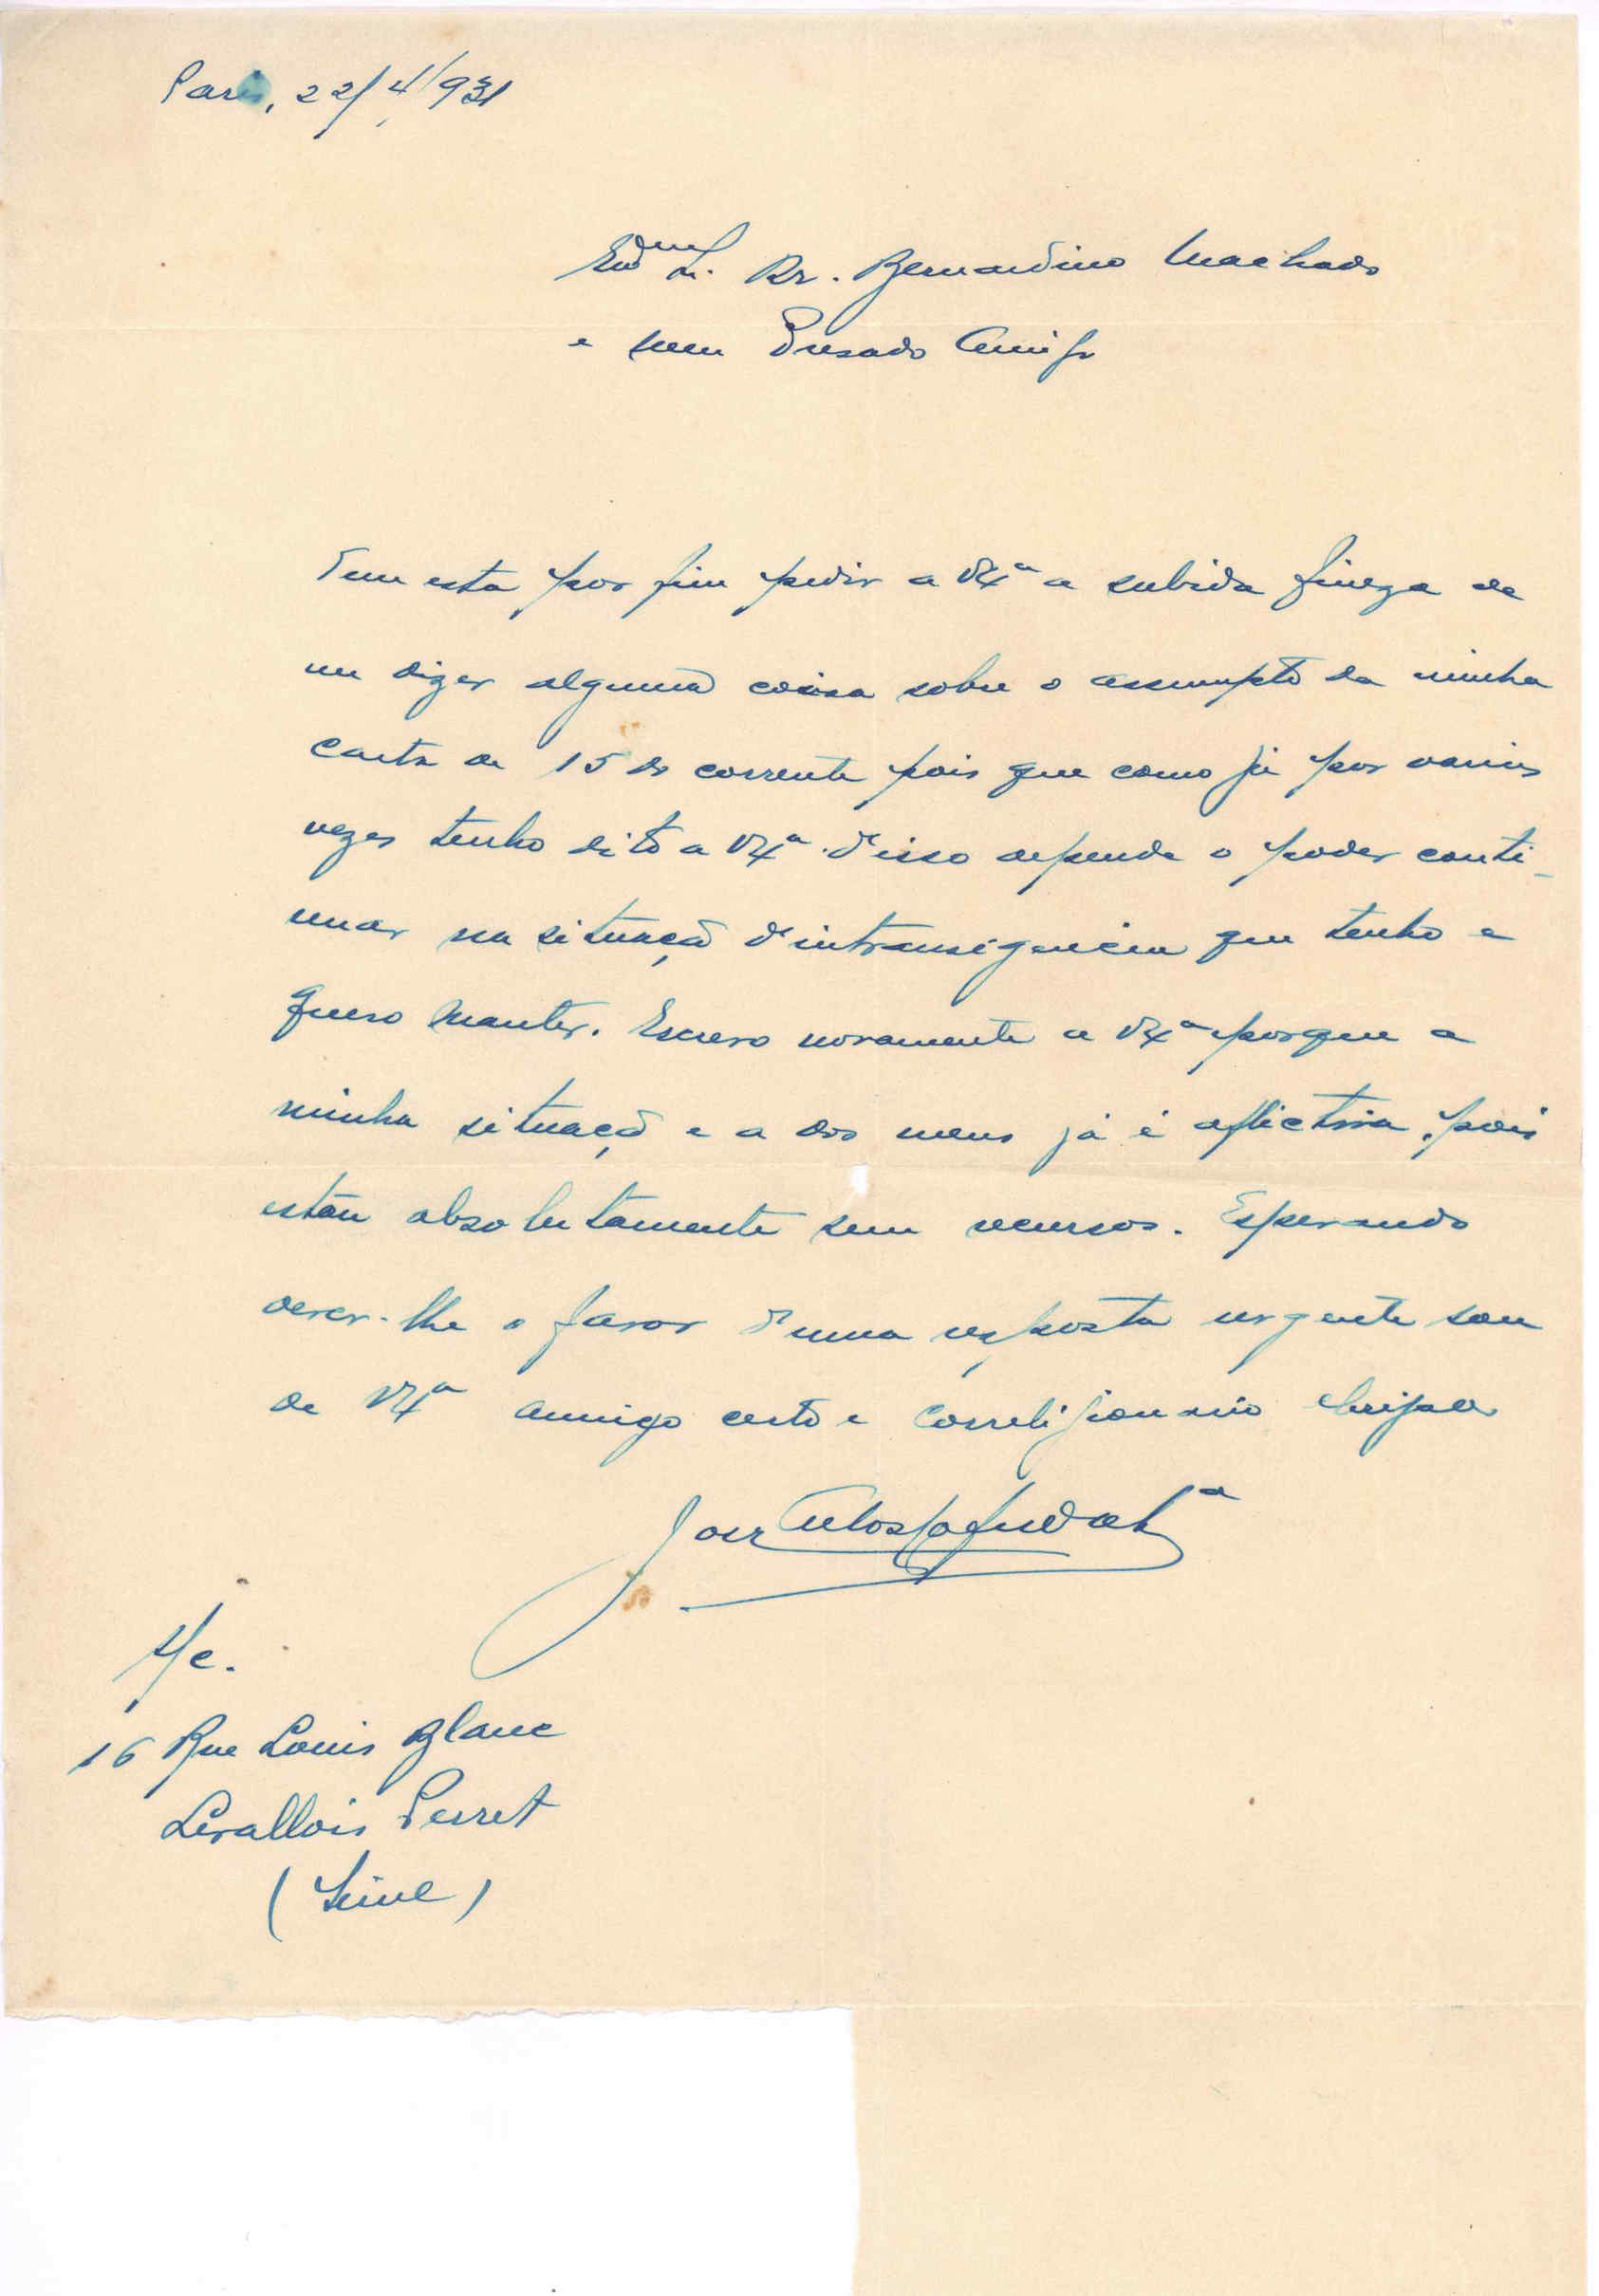 Paris, 22/4/931
Exmo Sr. Dr. Bernardino Machado
e meu Presado Amigo
Tem esta por fim pedir a V Exª a subida fineza de
me dizer alguma coisa sobre o assumpto da minha
carta de 15 do corrente pois que como já por varias
vezes tenho dito a V Exª d'isso depende o poder conti-
nuar na situação d'intransigencia que tenho e
quero manter. Escrevo novamente a V Exª porque a
minha situação e a dos meus já é aflictiva, pois
estou absolutamente sem recursos. Esperando
dever-lhe o favor d'uma resposta urgente sou
de V Exª amigo certo e correligionario
José
S/c.
16 Rue Louis Blanc
Levallois Perret
(Seine)